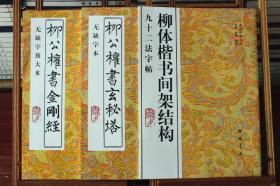 柳体楷书间架结构
九十二法字帖
柳公權書玄秘塔
无缺字本
柳公權書金剛經
无缺字放大本